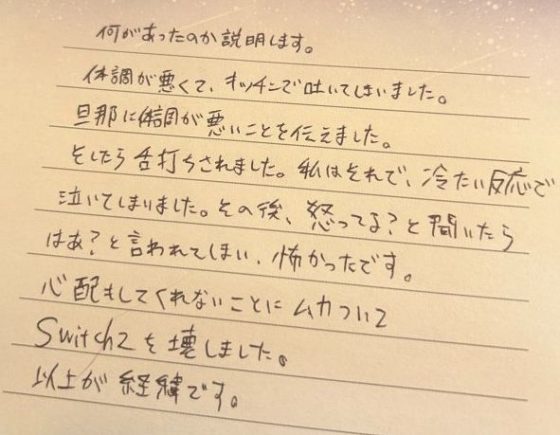 何があったのか説明します。
体調が悪くて、キッチンで吐いてしまいました。
旦那に体調が悪いことを伝えました。
そしたら舌打ちされました。私はそれで、冷たい反応で
泣いてしまいました。その後、怒ってる?と聞いたら
はあ?と言われてしまい、怖かったです。
心配もしてくれないことにムカついて
Switch2を壊しました。
以上が経緯です。